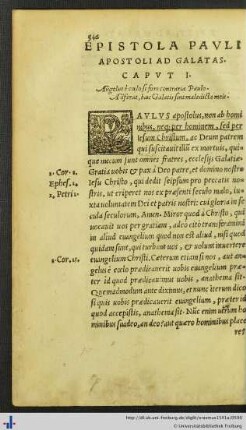 546
EPISTOLA PAVLI
APOSTOLI AD GALATAS.
CAPVT I.
Angelus è cœlo si ferat contraria Paulo
PAVLVS apostolus, non ab homi
nibus, neque per hominem, sed per
Iesum Christum, ac Deum patrem
qui suscitauit illū ex mortuis, qui-
que mecum sunt omnes fratres, ecclesijs Galatiæ.
Gratia vobis & pax à Deo patre, et domino nostro
Iesu Christo, qui dedit seipsum pro peccatis no-
stris, ut eriperet nos ex præsenti seculo malo, iu-
xta uoluntatem Dei et patris nostri: cui gloria in se
cula seculorum, Amen. Miror quod à Christo, qui
uocauit uos per gratiam, adeo cito transferimini
in aliud euangelium quod non est aliud, nisi quod
quidam sunt, qui turbant uos, & uolunt inuertere
euangelium Christi. Cæterum etiam si nos, aut an-
gelus è cœlo prædicauerit uobis euangelium præ-
ter id quod prædicauimus uobis, anathema sit.
Quemadmodum ante diximus, et nunc iterum dico
si quis uobis prædicauerit euangelium, præter id
quod accepistis, anathema sit. Nūc enim utrum ho
minibus suadeo, an deo? aut quæro hominibus place
re?
1. Cor. 1.
Ephes. 1.
1. Petri 1.
1. Cor. 15.
© Universitätsbibliothek Freiburg